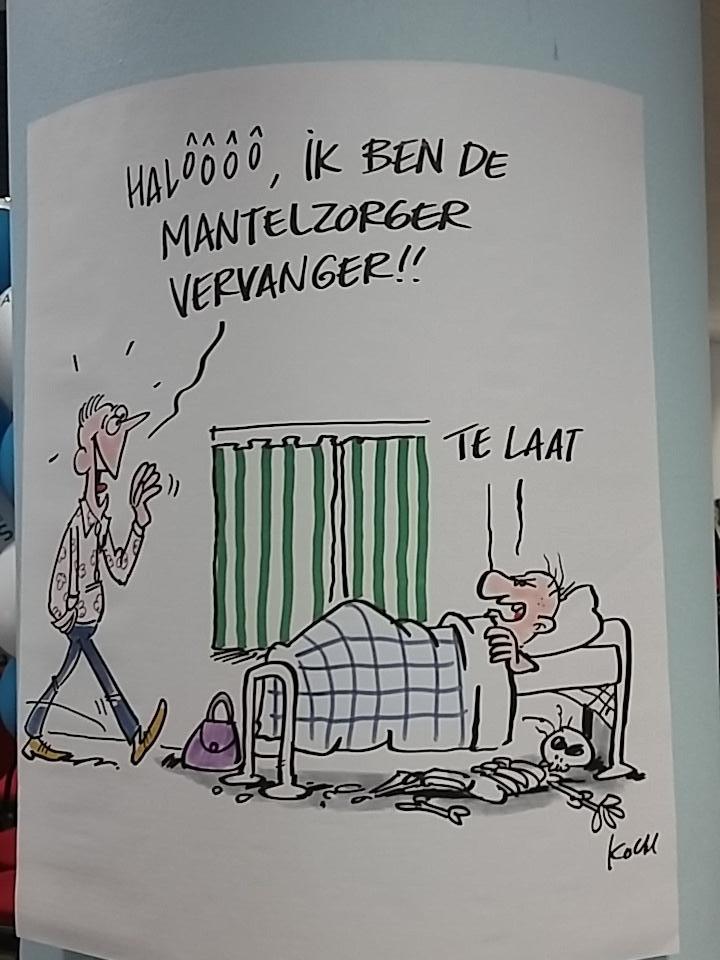 HALÔÔÔÔ, IK BEN DE
MANTELZORGER
VERVANGER!!
TE LAAT